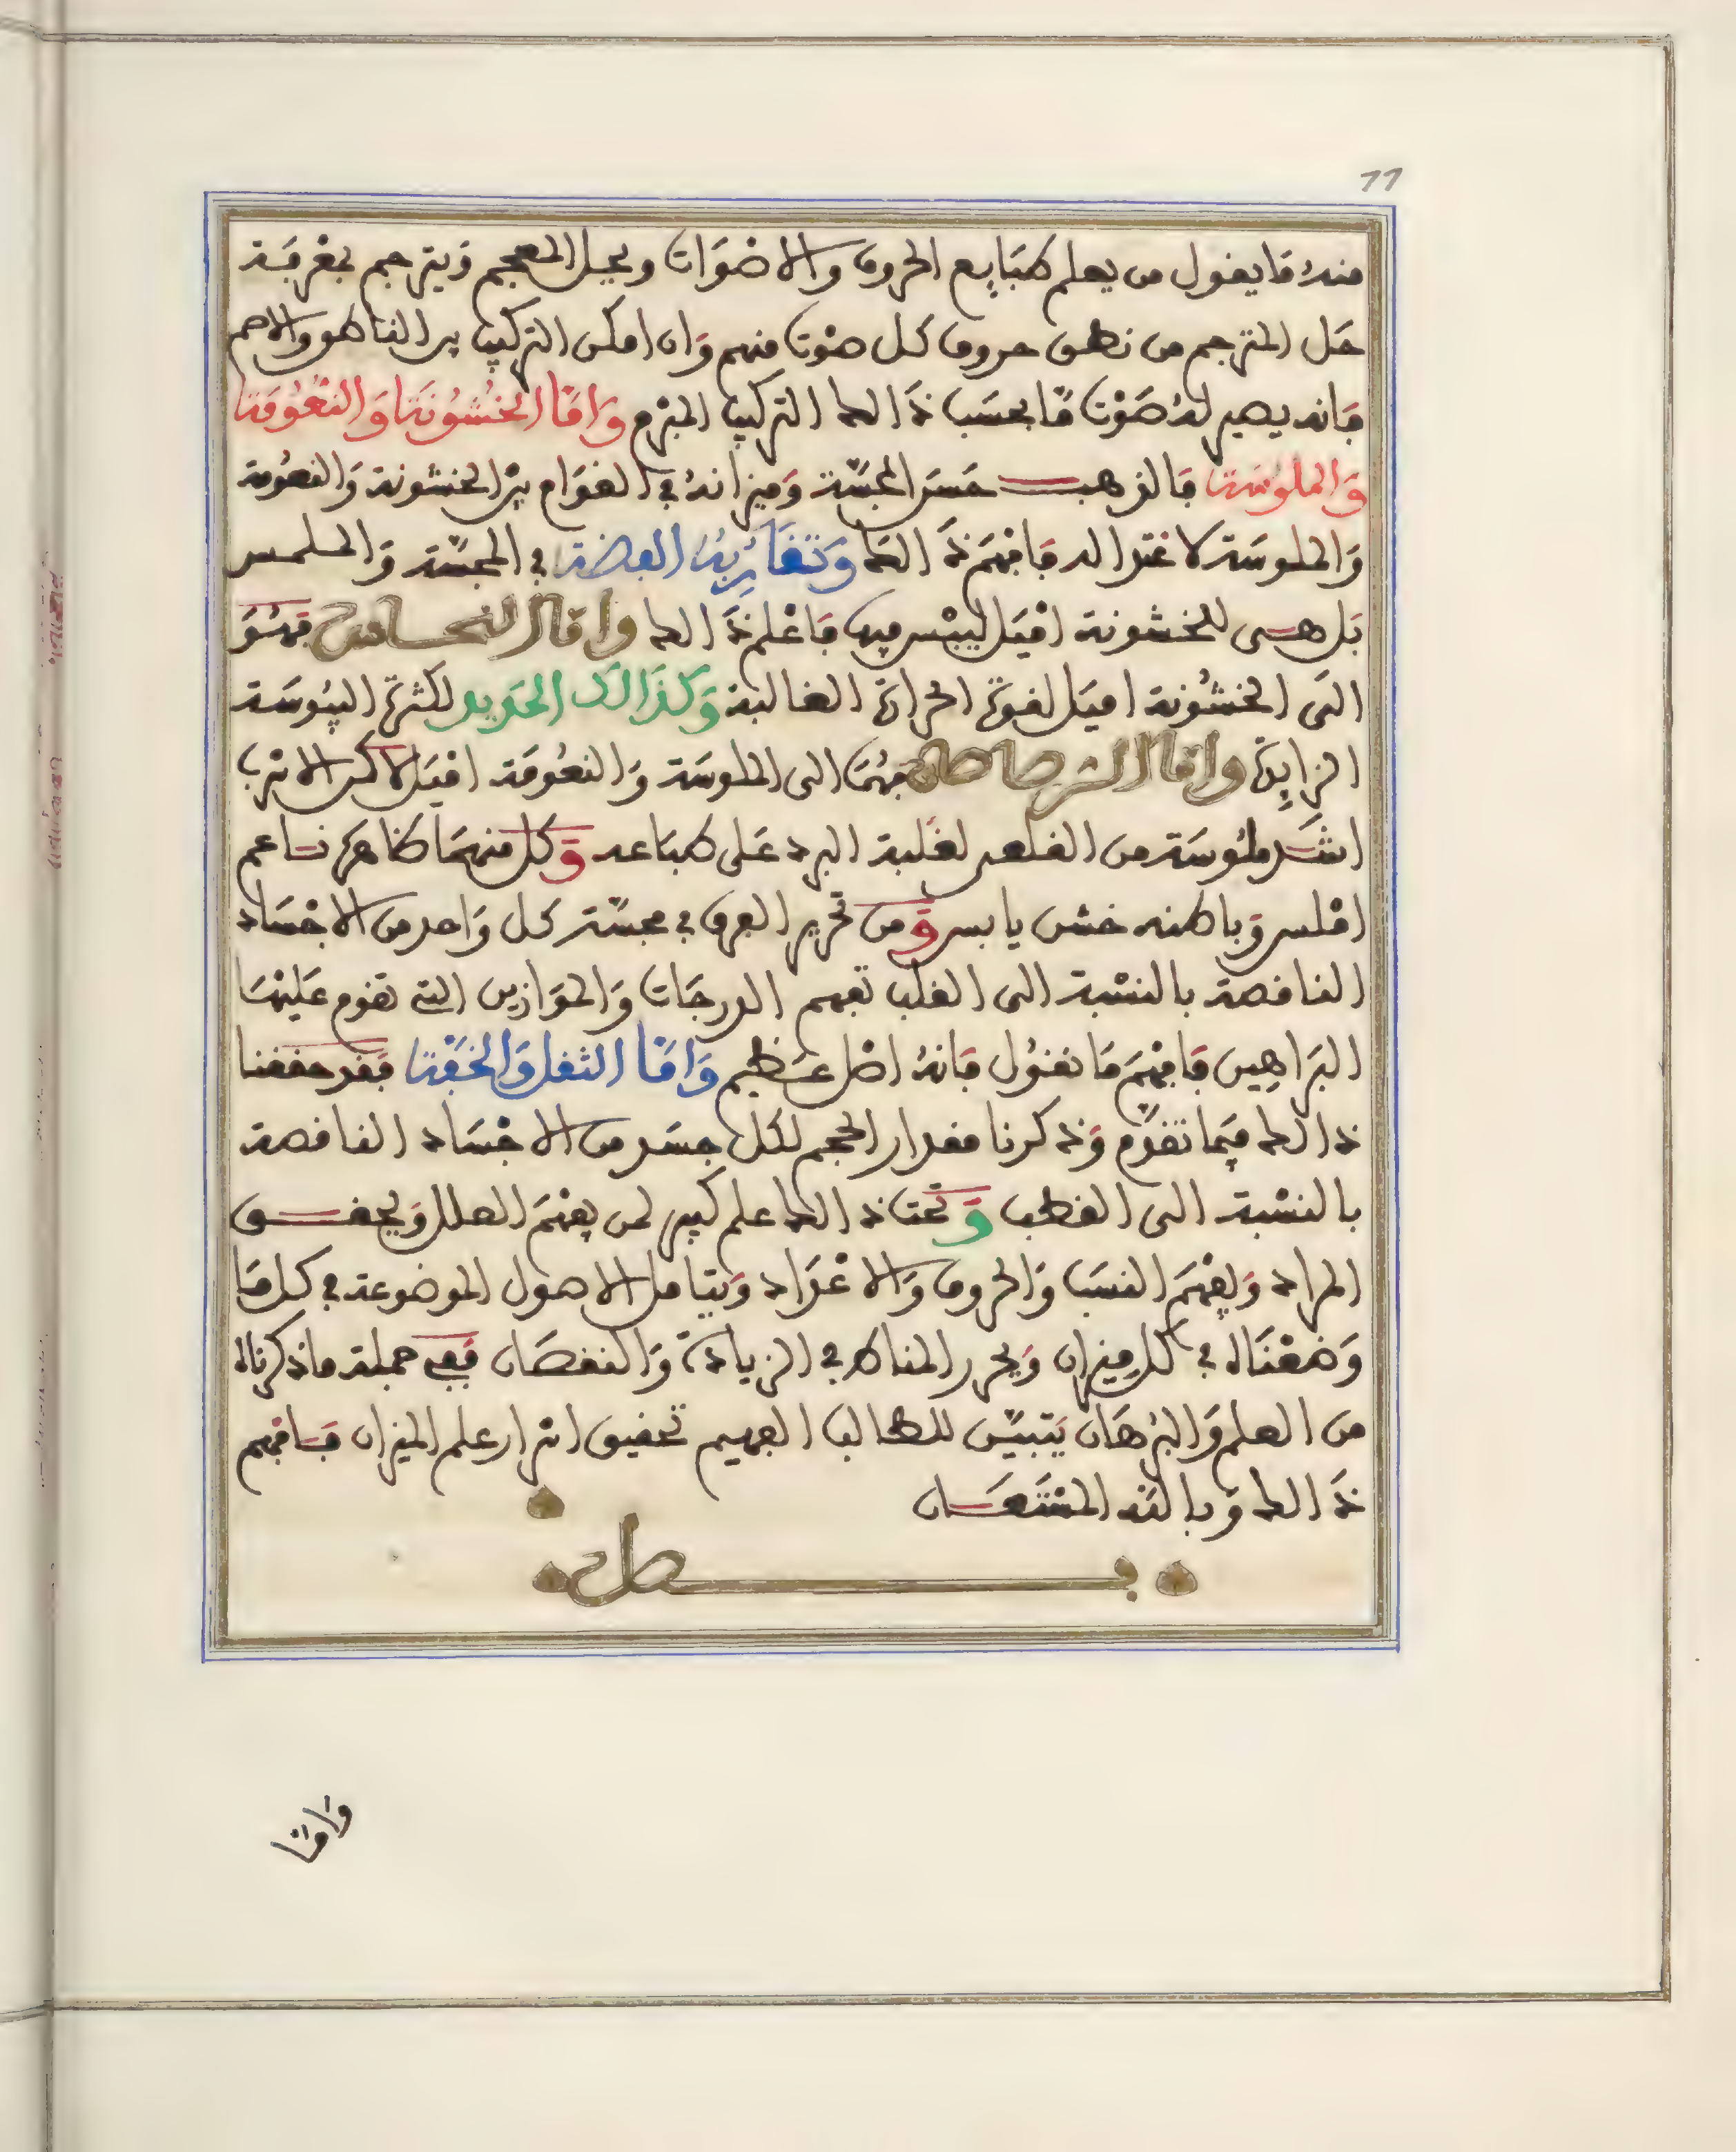 11
منه ما يقول من يعلم طبايع الحروف والاصوات ويحل المعجم ويترجم بمعرفة
حل المترجم من نطق حروف كل صوت منهم وان امكن التركيب بين الناطق والاصم
فانه يصير له صوت ما بحسب ذالك التركيب المبرم وَاَمَّا الخُشُونَة وَالنُّعُومَة
وَالملُوسَة فالذهب حسن المجسّة وميزانه في القوام بين الخشونة والنعومة
والملوسة لاعتداله فافهم ذالك وَتقَارِبُه الفضة في المجسّة والملمس
بل هي للخشونة اميل ليبس فيها فاعلم ذالك واما النحاس فهو
الى الخشونة اميل لقوة الحرارة الغالبة وَكذَالك الحَدِيد لكثرة اليبوسة
الزايدة واما الرصاصان فهما الى الملوسة والنعومة اميل لاكن الاسرب
اشد ملوسة من القلعي لغلبة البرد على طباعه وكل منهما ظاهره ناعم
املس وباطنه خشن يابس ومن تحرير الفرق في مجسّة كل واحد من الاجساد
الناقصة بالنسبة الى القلب تفهم الدرجات والموازين التي تقوم عليها
البراهين فافهم ما نقول فانه اصل عظيم وَاَمَّا الثقل وَالخفّة فقد حققنا
ذالك فيما تقدّم وذكرنا مقدار الحجم لكل جسد من الاجساد الناقصة
بالنسبة الى القطب وتحت ذالك علم كبير لمن يفهم العلل ويحقق
المراد ويفهم النسب والحروف والاعداد ويتامل الاصول الموضوعة في كل ما
وضعناه في كل ميزان ويحرر المناظر في الزيادة والنقصان ففي جملة ما ذكرناه
من العلم والبرهان يتبيّن للطالب الفهيم تحقيق اسرار علم الميزان فافهم
ذالك وبالله المستعان
فصل
وَامَّا